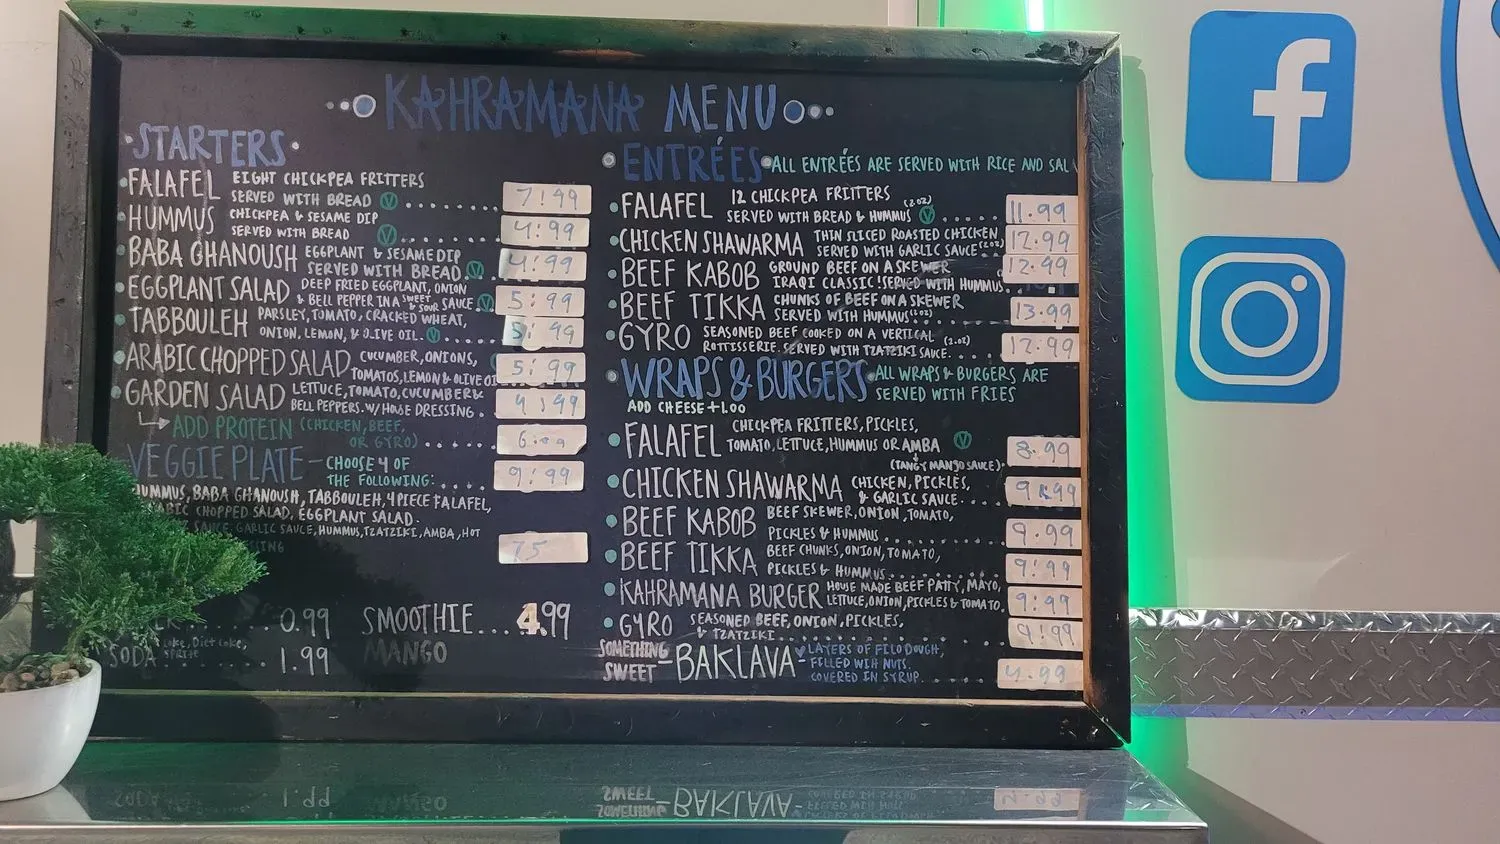 KAHRAMANA MENU
STARTERS
FALAFEL EIGHT CHICKPEA FRITTERS
SERVED WITH BREAD V 7.99
HUMMUS CHICKPEA & SESAME DIP
SERVED WITH BREAD V 4.99
BABA GHANOUSH EGGPLANT & SESAME DIP
SERVED WITH BREAD V 4.99
EGGPLANT SALAD DEEP FRIED EGGPLANT, ONION
& BELL PEPPER IN A SWEET & SOUR SAUCE V 5.99
TABBOULEH PARSLEY, TOMATO, CRACKED WHEAT,
ONION, LEMON, & OLIVE OIL V 5.99
ARABIC CHOPPED SALAD CUCUMBER, ONIONS,
TOMATOS, LEMON & OLIVE OI 5.99
GARDEN SALAD LETTUCE, TOMATO, CUCUMBER &
BELL PEPPERS. W/ HOUSE DRESSING. 4.99
ADD PROTEIN (CHICKEN, BEEF,
OR GYRO) 6.
VEGGIE PLATE - CHOOSE 4 OF
THE FOLLOWING: 9.99
HUMMUS, BABA GHANOUSH, TABBOULEH, 4 PIECE FALAFEL,
CHOPPED SALAD, EGGPLANT SALAD.
SAUCE: GARLIC SAUCE, HUMMUS, TZATZIKI, AMBA, HOT
75
0.99
SODA Coke, Diet Coke, SPRITE 1.99
SMOOTHIE 4.99
MANGO
ENTRÉES ALL ENTRÉES ARE SERVED WITH RICE AND SAL
FALAFEL 12 CHICKPEA FRITTERS
SERVED WITH BREAD & HUMMUS (2oz) V 11.99
CHICKEN SHAWARMA THIN SLICED ROASTED CHICKEN
SERVED WITH GARLIC SAUCE (2oz) 12.99
BEEF KABOB GROUND BEEF ON A SKEWER
IRAQI CLASSIC! SERVED WITH HUMMUS 12.99
BEEF TIKKA CHUNKS OF BEEF ON A SKEWER
SERVED WITH HUMMUS (2oz) 13.99
GYRO SEASONED BEEF COOKED ON A VERTICAL
ROTTISSERIE. SERVED WITH TZATZIKI SAUCE. (2oz) 12.99
WRAPS & BURGERS ALL WRAPS & BURGERS ARE
SERVED WITH FRIES
ADD CHEESE +1.00
FALAFEL CHICKPEA FRITTERS, PICKLES,
TOMATO, LETTUCE, HUMMUS OR AMBA V
(TANGY MANGO SAUCE) 8.99
CHICKEN SHAWARMA CHICKEN, PICKLES,
& GARLIC SAUCE 9.99
BEEF KABOB BEEF SKEWER, ONION, TOMATO,
PICKLES & HUMMUS 9.99
BEEF TIKKA BEEF CHUNKS, ONION, TOMATO,
PICKLES & HUMMUS 9.99
KAHRAMANA BURGER HOUSE MADE BEEF PATTY, MAYO,
LETTUCE, ONION, PICKLES & TOMATO. 9.99
GYRO SEASONED BEEF, ONION, PICKLES,
& TZATZIKI 9.99
SOMETHING SWEET - BAKLAVA - LAYERS OF FILO DOUGH,
FILLED WIH NUTS.
COVERED IN SYRUP. 4.99